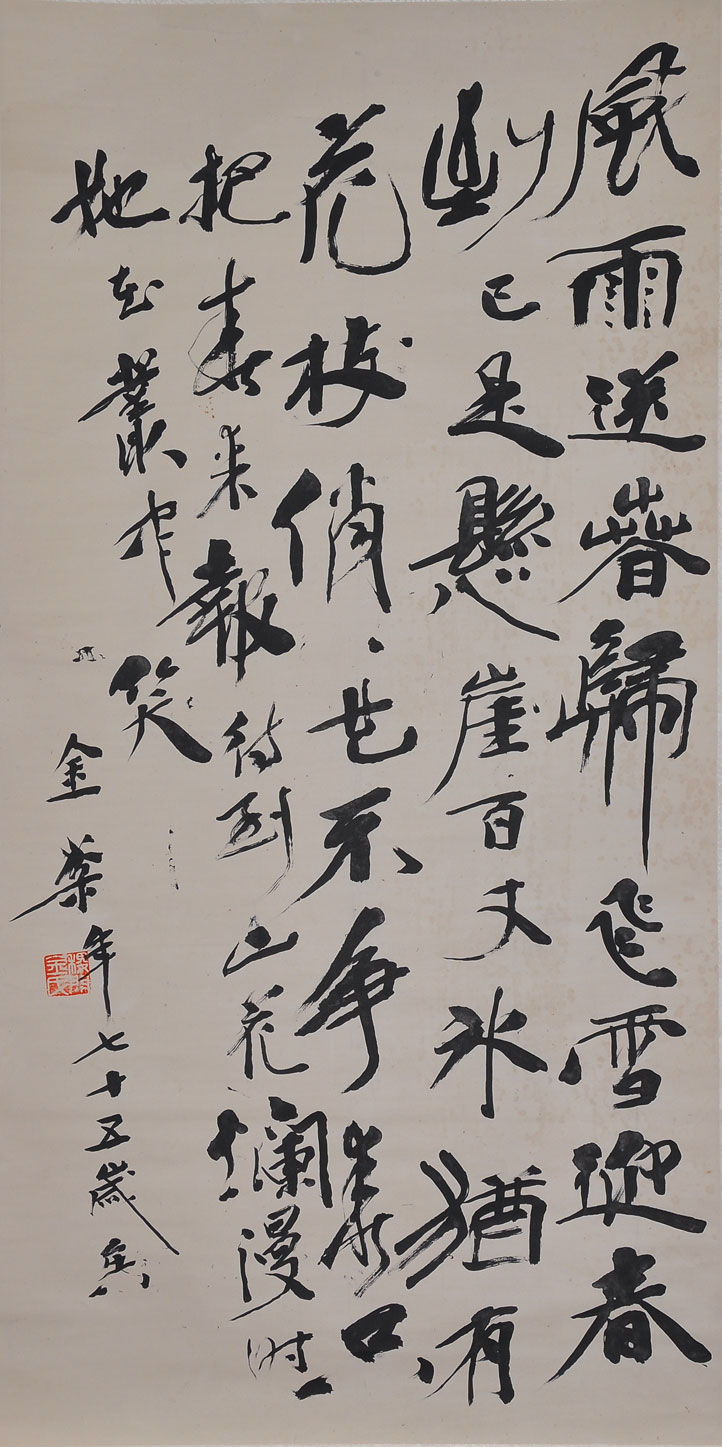 風雨送春歸飛雪迎春
到已是懸崖百丈冰猶有
花枝俏、也不争春只
把春来報待到山花爛漫時
她在叢中笑
金年七十五歲